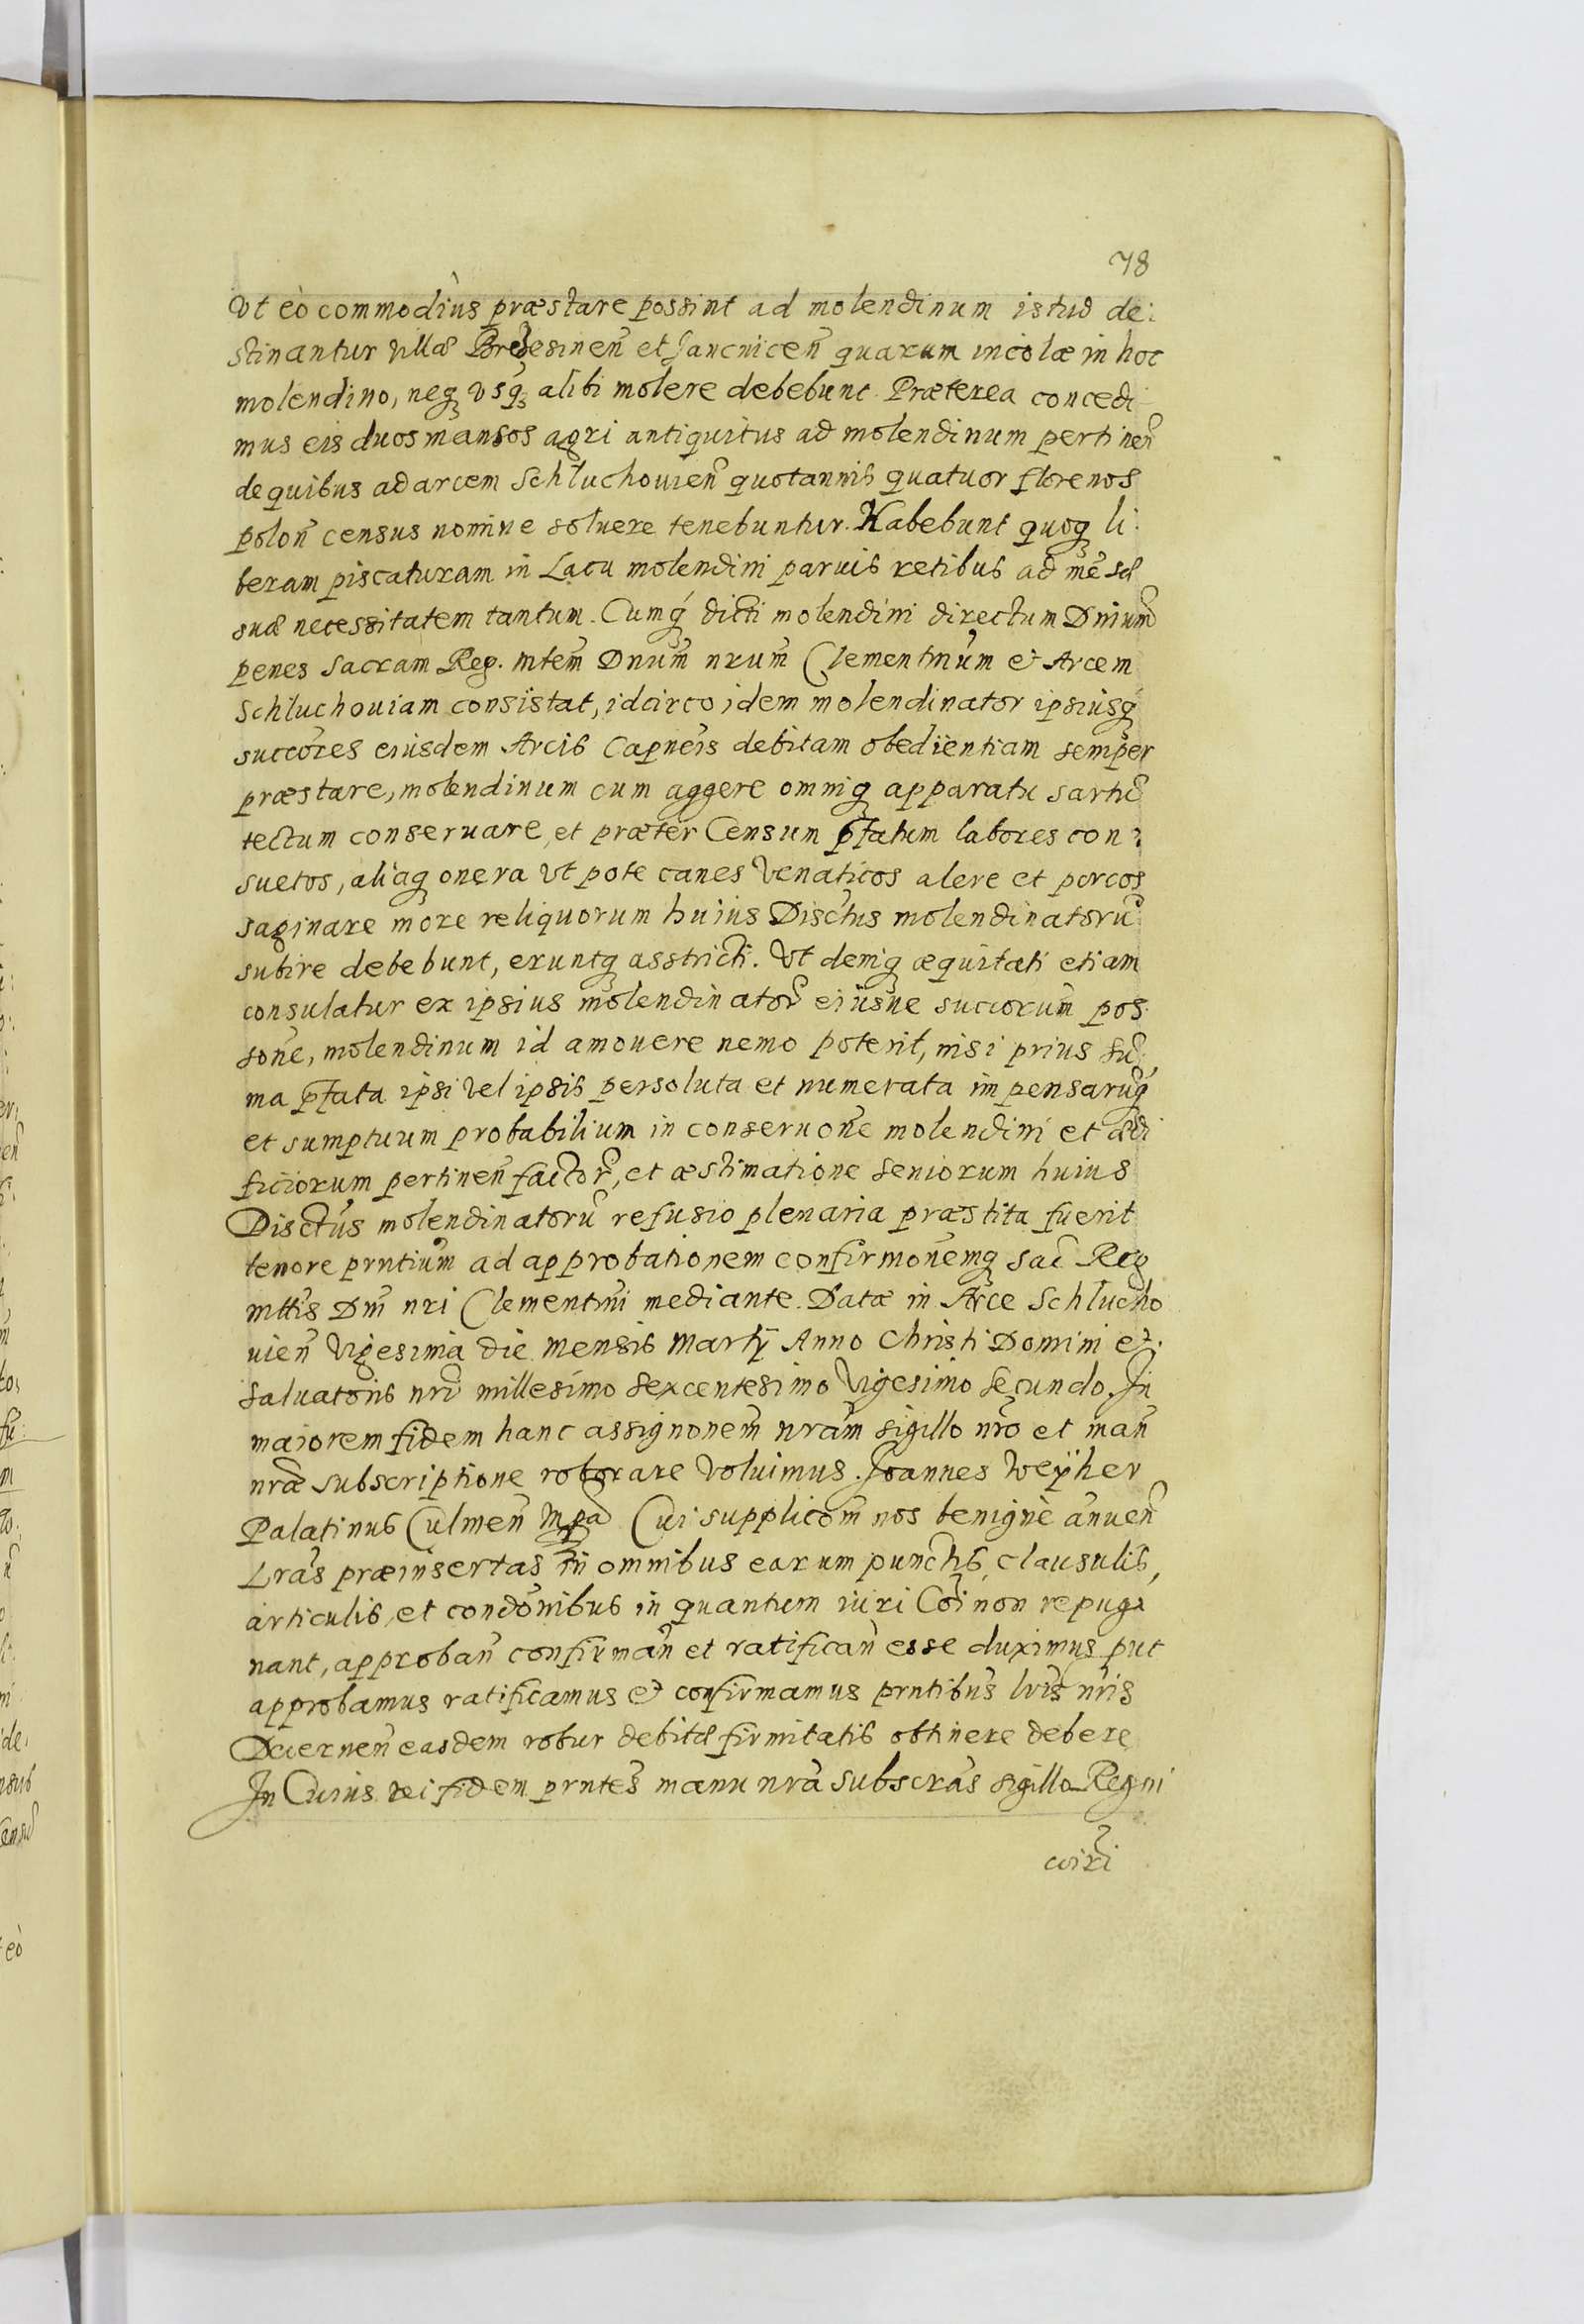 78
Vt eò commodiùs præstare possint ad molendinum istud de:
stinantur villæ Brzesinen̄ et Jancnicen̄ quarum incolæ in hoc
molendino, neq₃ vsq₃ alibi molere debebunt. Præterea concedi
mus eis duos mansos agri antiquitus ad molendinum pertinen̄
de quibus ad arcem Schluchouien̄ quotannis quatuor florenos
polon̄ census nomine soluere tenebuntur. Habebunt quoq₃ li:
beram piscaturam in Lacu molendini paruis retibus ad mēsæ
suæ necessitatem tantum. Cumq́ dicti molendini directum Dniūm
penes Sacram Reg. Mtem̄ Dnum̄ nrum̄ Clementmūm & Arcem
Schluchouiam consistat, idcirco idem molendinator ipsiusq́
succōres eiusdem Arcis Capneīs debitam obedientiam semper
præstare, molendinum cum aggere omniq₃ apparatu sartū
tectum conseruare, et præter Censum p̄fatum labores con:
suetos, aliaq₃ onera vt pote canes venaticos alere et porcos
saginare more reliquorum huius Disctus molendinatorū
subire debebunt, eruntq₃ asstricti. Vt deniq₃ æquitati etiam
consulatur ex ipsius molendinator̄ eiusue succorum̄ pos
sone͞, molendinum id amouere nemo poterit, nisi prius sū
ma p̄fata ipsi vel ipsis persoluta et numerata impensarūq́
et sumptuum probabilium in conseruone͞ molendini et ædi
ficiorum pertinen̄ factor̄, et æstimatione seniorum huius
Disctūs molendinatorū refusio plenaria præstita fuerit
tenore prntium̄ ad approbationem confirmonem̄q₃ Sac̄ Reg
mttis Dni̅ nri Clementmi̅ mediante. Datæ in Arce Schlucho
uien̄ vigesima die Mensis Martÿ Anno Christi Domini et
Saluatoris nri̅ millesimo sexcentesimo vigesimo secundo. In
maiorem fidem hanc assignonem̄ nram̄ sigillo nro͞ et man̄
nræ͞ subscriptione roborare voluimus. Joannes Weÿher
Palatinus Culmen̄ Mpa Cui supplicōm nos benignè an̄uen̄
Lrās præinsertas in omnibus earum punctis, clausulis,
articulis, et condōnibus in quantum iuri Co͞i non repug:
nant, approban̄ confirman̄ et ratifican̄ esse duximus put
approbamus ratificamus & confirmamus prntibus̄ lris̄ nris̄
Decernen̄ easdem robur debitæ firmitatis obtinere debere
In Cuius rei fidem prntes̄ manu nra͞ subscrās sigillo Regni